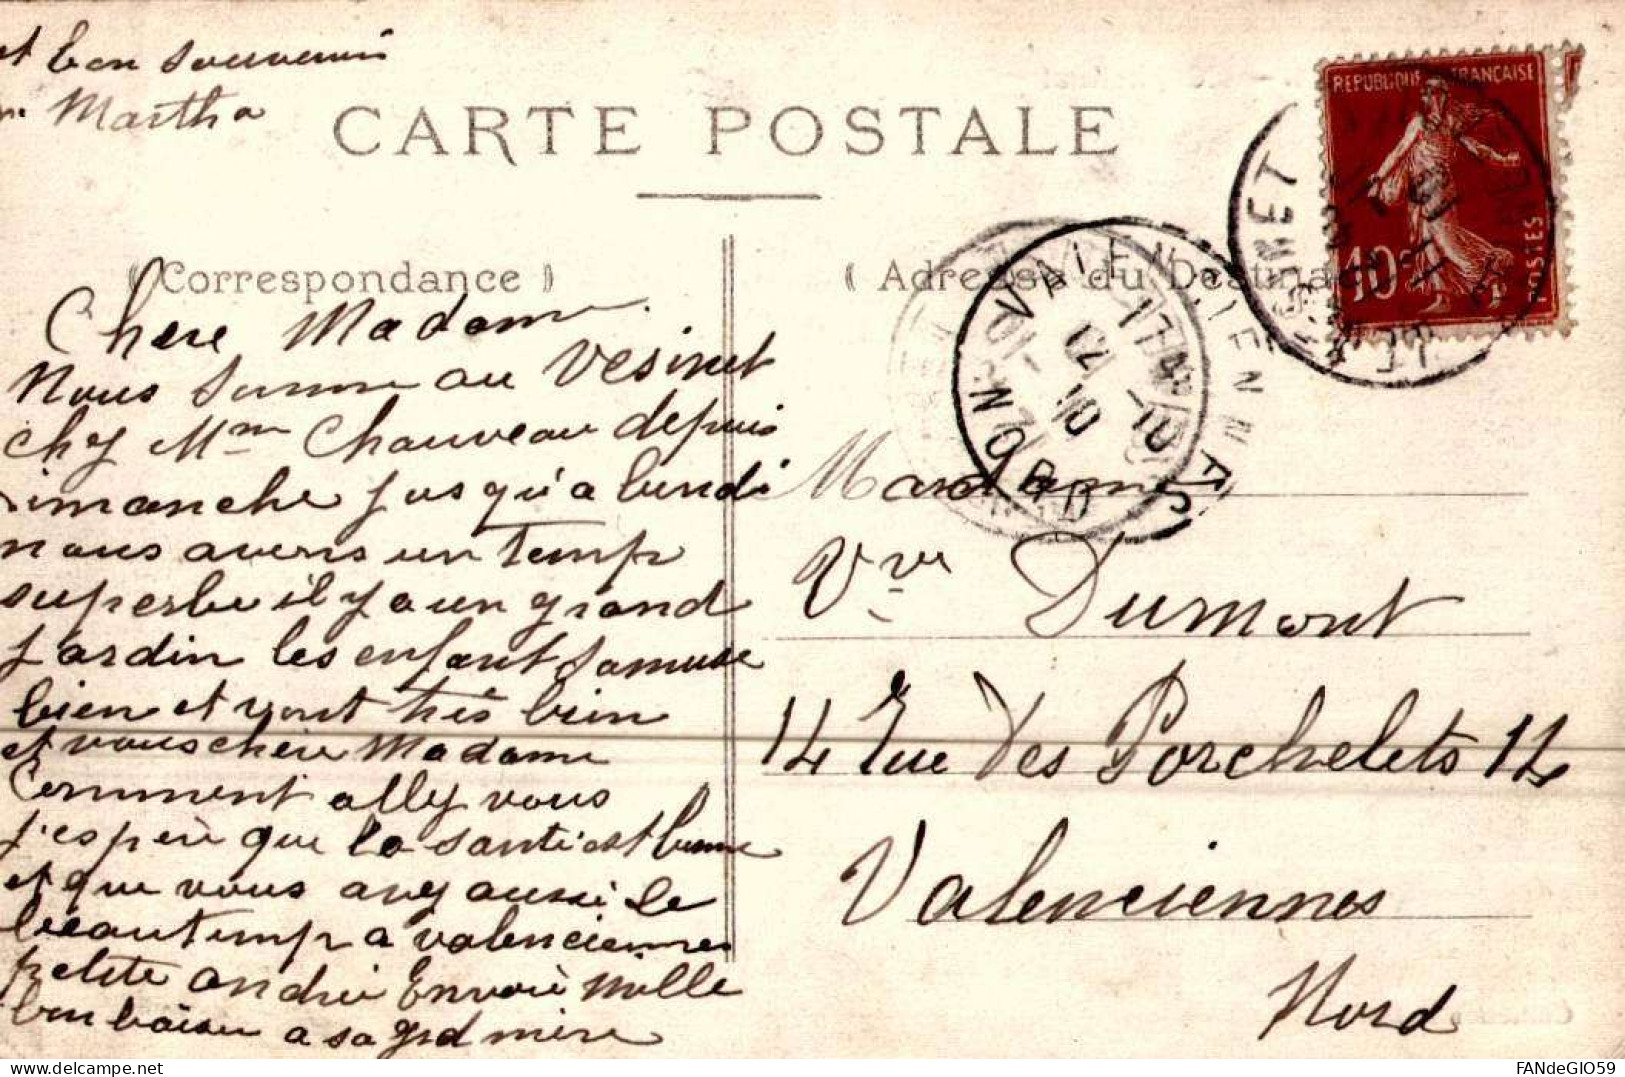 et bon souvenir
Martha
CARTE POSTALE
REPUBLIQUE FRANÇAISE
10c
POSTES
( Correspondance )
( Adresse du Destina
LE VESINET
VALENCIENNES
NORD
17 45
12 10
10
Chere Madame
Nous somme au Vesinet
chez Mme Chauveau depuis
dimanche jusqu'a lundi
nous avons un temp
superbe il y a un grand
jardin les enfant samuse
bien et vont très bien
et vous chère Madame
Comment allez vous
j'espère que la santé est bonne
et que vous avez aussi le
beau temp a valenciennes
petite andré Envoie mille
bon baiser a sa grd mère
Madame
Vve Dumont
14 Rue des Porchelets 14
Valenciennes
Nord
FANdeGIO59